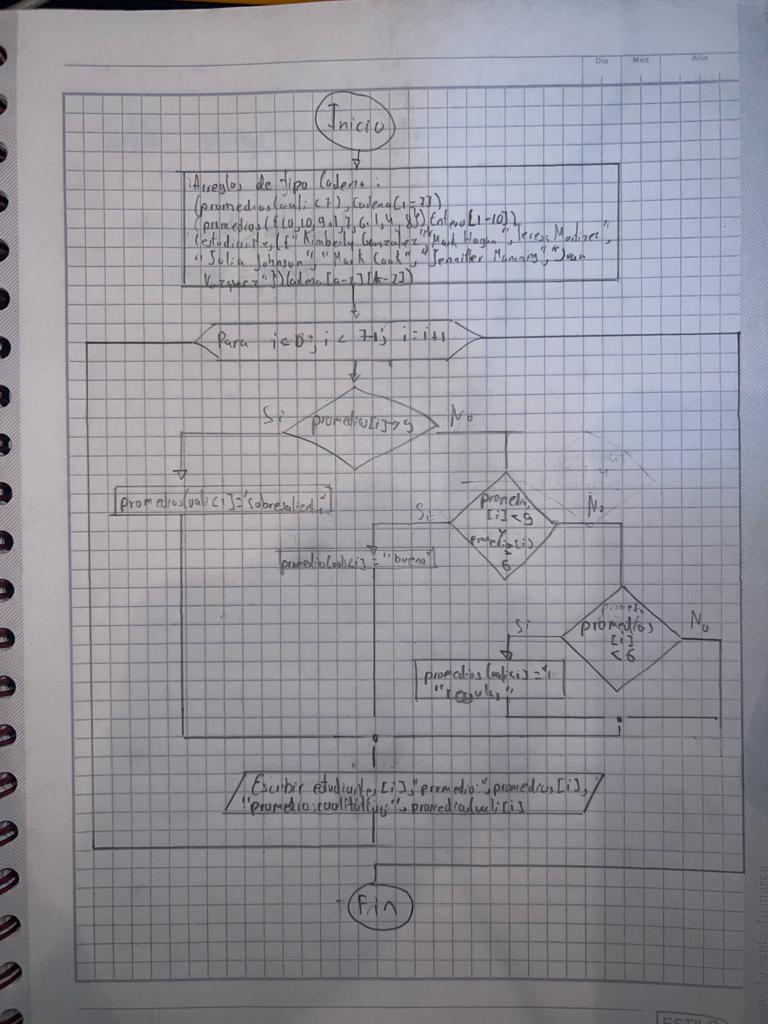 Día Mes Año
Inicio
Arreglos de tipo Cadena:
(promedioscuali<7), Cadena[1-7])
(promedios({10,10,9,1,7,6,1,4,8}) Entero[1-10])
(estudiante,({"Kimberly Gonzalez","Mark Hogan","Teresa Martinez",
"Julia Johnson","Mark Cook","Jennifer Manning","Juan
Vazquez"})Cadena[a-z][A-Z])
Para i=0; i < 7-1; i=i+1
promedio[i]>9
Si
No
promedioscuali[i]="sobresaliente"
promedio
[i]<9
y
promedio[i]
>
6
Si
No
promediocuali[i]="bueno"
promedio
promedios
[i]
<6
Si
No
promedioscuali[i]="
"regular"
Escribir estudiante,[i],"promedio:",promedios,[i],
"promedio cualitativo:", promediocuali[i]
Fin